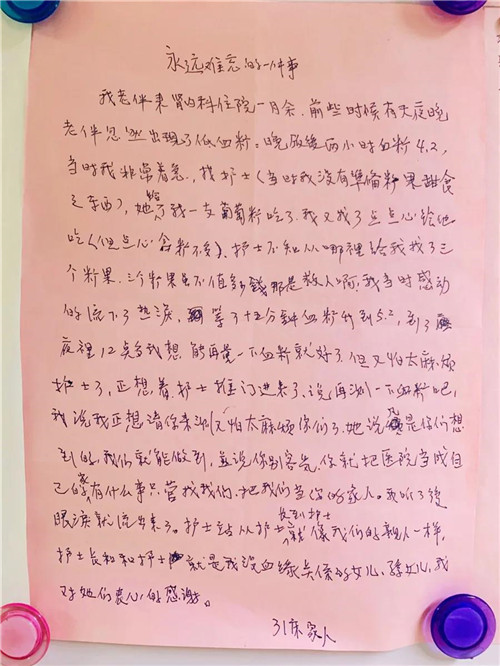 永远难忘的一件事
我老伴来肾内科住院一月余。前些时候有天夜晚
老伴忽然出现了低血粉。晚饭後两小时血粉4.2,
当时我非常着急,找护士(当时我没有準俻粉果甜食
之东西),她给了我一支葡萄粉吃了。我又找了点点心给他
吃(但点心含粉不多),护士不知从哪裡给我找了三
个粉果。三个粉果虽不值多钱那是救人啊,我当时感动
的流下了热泪,等了十五分鈡血粉升到5.2,到了
夜裡12点多我想能再量一下血粉就好了但又怕太麻烦
护士了,正想着护士推门进来了,说再测一下血粉吧,
我说我正想请你来测又怕太麻烦你们了,她说凡是你们想
到的,我们就能做到,並说你别客气,你就把医院当成自
己的家有什么事只管找我们,把我们当您的家人。我听了後
眼泪就流出来了。护士站从护士长到护士就像我们的親人一样,
护士长和护士就是我没血缘关係的女儿、孫女儿,我
对她们衷心的感谢。
31床家人